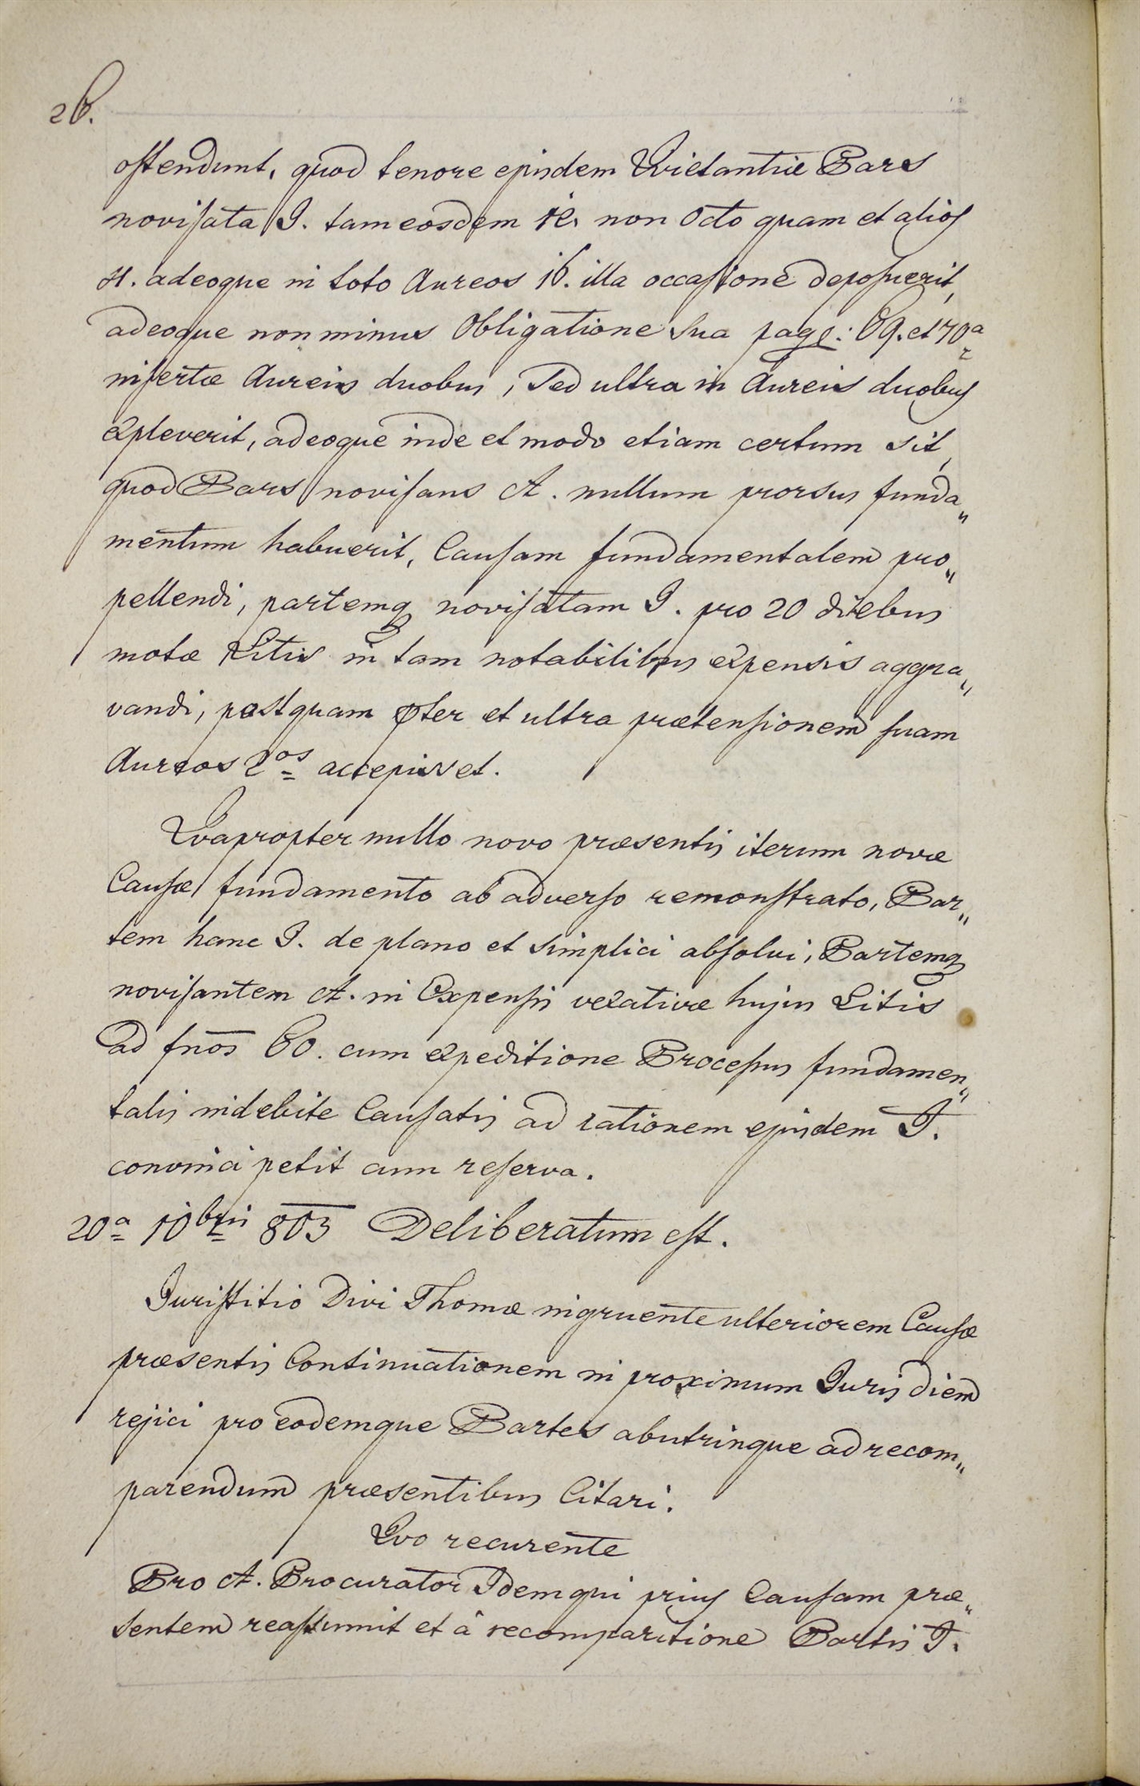 26.
ostendunt, quod tenore ejusdem Qvietantiæ Pars
novisata I. tam eosdem 12. non Octo quam et alios
4. adeoque in toto Aureos 16. illa occasione deposuerit,
adeoque non minus Obligatione sua pag: 69. et 70ª
insertæ Aureis duobus, Sed ultra in Aureis duobus
expleverit, adeoque inde et modo etiam certum sit,
quod Pars novisans A. nullum prorsus funda„
mentum habuerit, Causam fundamentalem pro„
pellendi, partemq novisatam I. pro 20 diebus
motæ Litis in tam notabilibus expensis aggra„
vandi, postquam pter et ultra prætensionem suam
Aureos 2os accepisset.
Qvapropter nullo novo præsentis iterum novæ
Causæ fundamento ab adverso remonstrato, Par„
tem hanc I. de plano et simplici absolvi, Partemq
novisantem A. in Expensis vexativæ hujus Litis
ad fnos 60. cum expeditione Processus fundamen„
talis indebite Causatis ad rationem ejusdem I.
convinci petit cum reserva.
20ª 10bris 803 Deliberatum est.
Juristitio Divi Thomæ ingruente ulteriorem Causæ
præsentis Continuationem in proximum Juris diem
rejici pro eodemque Partes abutrinque ad recom„
parendum præsentibus Citari.
Qvo recurente
Pro A. Procurator Idem qui prius Causam præ„
sentem reassumit et â recomparitione Partis I.